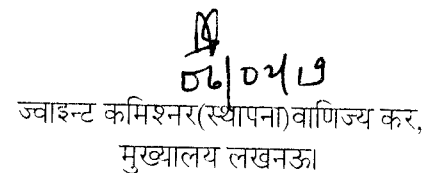 ज्वाइन्ट कमिश्नर(स्थापना)वाणिज्य कर,
मुख्यालय लखनऊ।